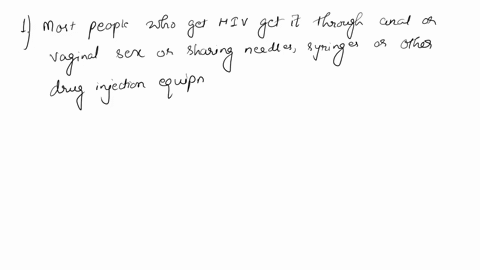 1) Most people who get HIV get it through anal or
vaginal sex or sharing needles, syringes or other
drug injection equipn